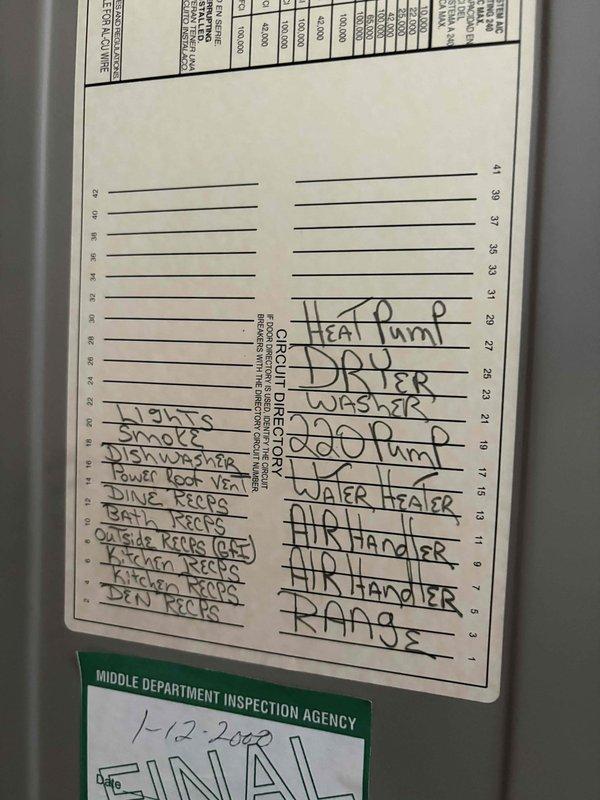 STEM A/C
TING 240
C MAX.
APACIDAD EN
CI DEL
STEMA A 240
CA MAX.
10,000
22,000
25,000
42,000
100,000
65,000
100,000
100,000
42,000
100,000
42,000
100,000
O EN SERIE
RRUPTING
STALLED.
TERAN TENER UNA
ES AND REGULATIONS.
LE FOR AL-CU WIRE
CIRCUIT DIRECTORY
IF DOOR DIRECTORY IS USED, IDENTIFY THE CIRCUIT
BREAKERS WITH THE DIRECTORY CIRCUIT NUMBER
42
40
38
36
34
32
30
28
26
24
22
20
18
16
14
12
10
8
6
4
2
LIGHTS
SMOKE
DISHWASHER
Power Roof Vent
DINE RECPS
BATH RECPS
OUTSIDE RECPS (GFI)
Kitchen RECPS
Kitchen RECPS
DEN RECPS
41
39
37
35
33
31
29
27
25
23
21
19
17
15
13
11
9
7
5
3
1
HEAT Pump
DRYER
WASHER
220 Pump
WATER HEATER
AIR HANDLER
AIR HANDLER
RANGE
MIDDLE DEPARTMENT INSPECTION AGENCY
1-12-2000
Date
FINAL